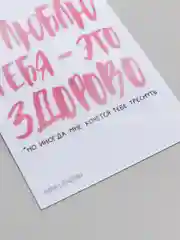 ЛЮБЛЮ
ТЕБЯ - ЭТО
ЗДОРОВО
*НО ИНОГДА МНЕ ХОЧЕТСЯ ТЕБЕ ТРЕСНУТЬ